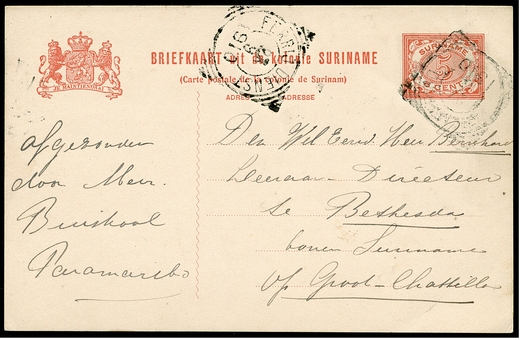 BRIEFKAART uit de kolonie SURINAME
(Carte postale de la colonie de Surinam)
ADRES ADRESSE
JE MAINTIENDRAI
SURINAME
5
CENT
afgezonden
door Mevr.
Paramaribo
Den Wel Eerw. Heer Bernhard
Leeraar-Directeur
te Bethesda
boven Suriname
op Groot-Chattillon